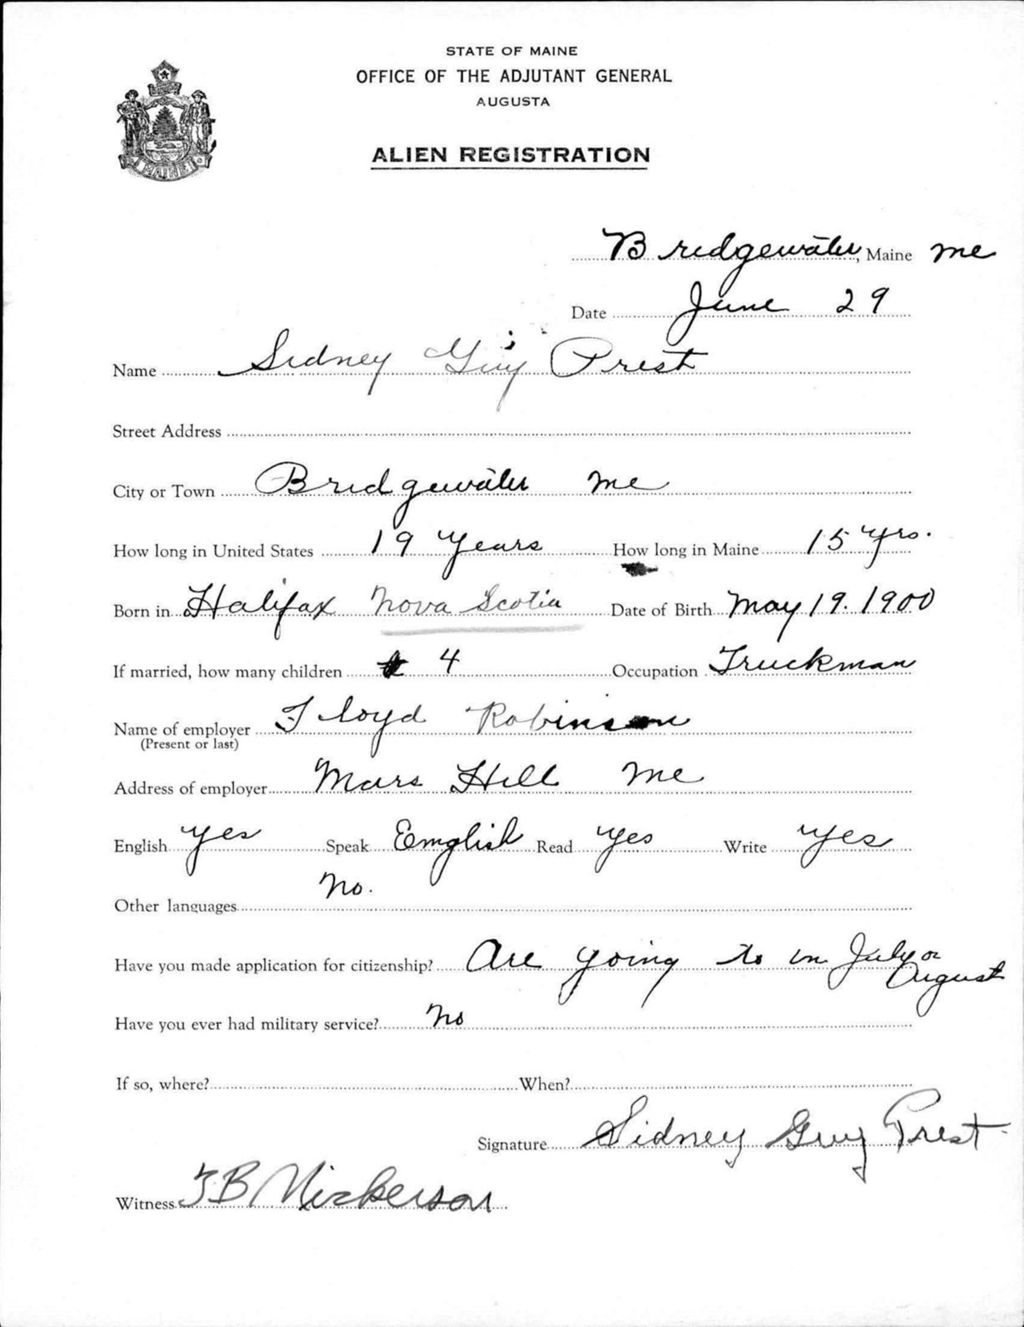 STATE OF MAINE
OFFICE OF THE ADJUTANT GENERAL
AUGUSTA
ALIEN REGISTRATION
MAINE
Bridgewater, Maine Me
Date June 29
Name Sidney Guy Prest
Street Address
City or Town Bridgewater Me
How long in United States 19 Years How long in Maine 15 Yrs.
Born in Halifax Nova Scotia Date of Birth May 19. 1900
If married, how many children 4 Occupation Truckman
Name of employer Floyd Robinson
(Present or last)
Address of employer Mars Hill Me
English Yes Speak English Read Yes Write Yes
Other languages No.
Have you made application for citizenship? Are going to in July or August
Have you ever had military service? No
If so, where? When?
Signature Sidney Guy Prest
Witness Nickerson